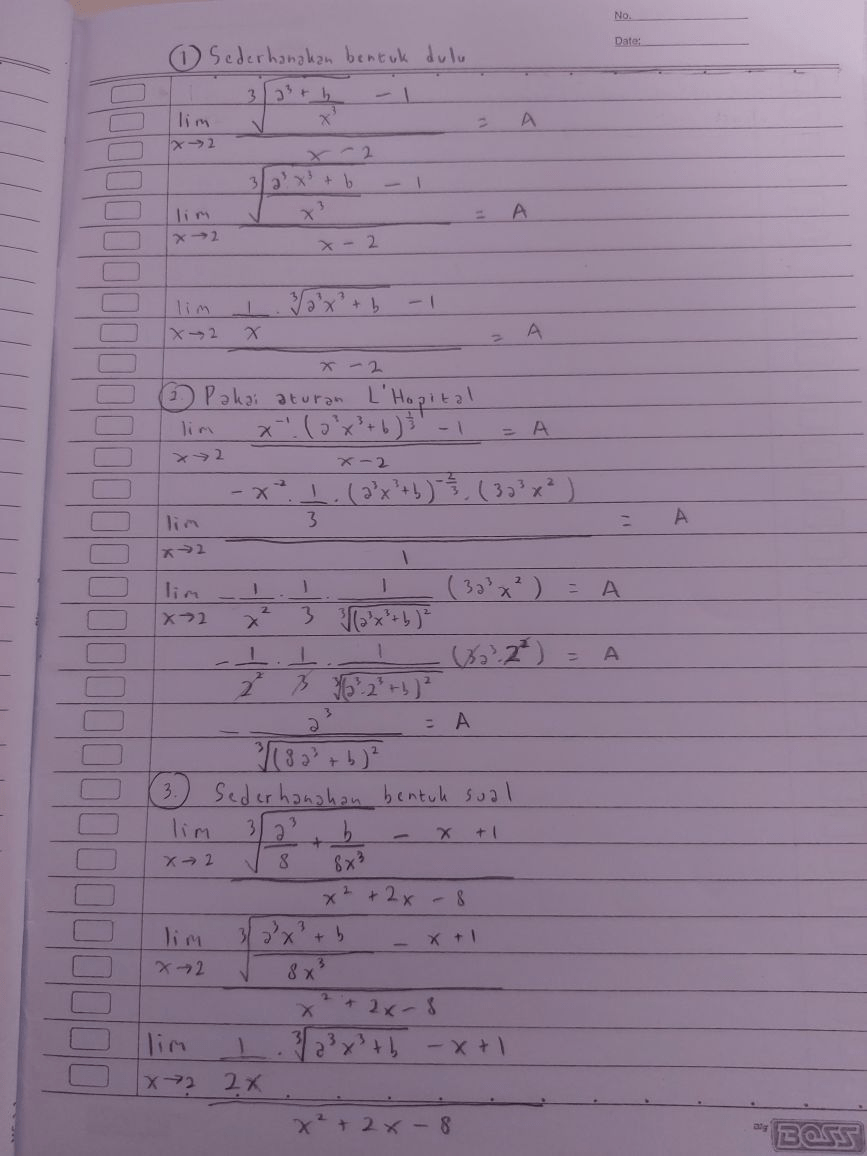 No.
Date:
① Sederhanakan bentuk dulu
lim x→2 (∛(a³ + b/x³) - 1)/(x - 2) = A
lim x→2 (∛((a³x³ + b)/x³) - 1)/(x - 2) = A
lim x→2 (1/x · ∛(a³x³ + b) - 1)/(x - 2) = A
② Pakai aturan L'Hopital
lim x→2 (x⁻¹ · (a³x³ + b)^(1/3) - 1)/(x - 2) = A
lim x→2 (-x⁻² · 1/3 · (a³x³ + b)^(-2/3) · (3a³x²))/1 = A
lim x→2 -1/x² · 1/3 · 1/∛((a³x³ + b)²) (3a³x²) = A
-1/2² · 1/3 · 1/∛((a³·2³ + b)²) (3a³·2²) = A
-a³/∛((8a³ + b)²) = A
③ Sederhanakan bentuk soal
lim x→2 (∛(a³/8 + b/8x³) - x + 1)/(x² + 2x - 8)
lim x→2 (∛((a³x³ + b)/8x³) - x + 1)/(x² + 2x - 8)
lim x→2 (1/2x · ∛(a³x³ + b) - x + 1)/(x² + 2x - 8)
BOSS